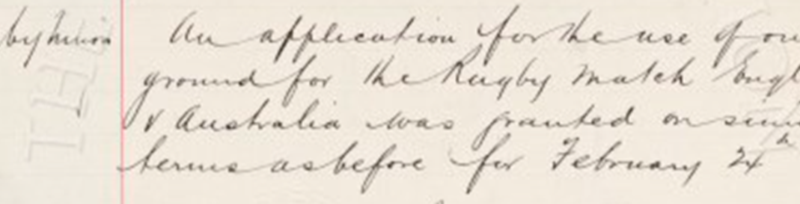 An application for the use of our
ground for the Rugby match Engl
& Australia was granted on
terms as before for February 24th